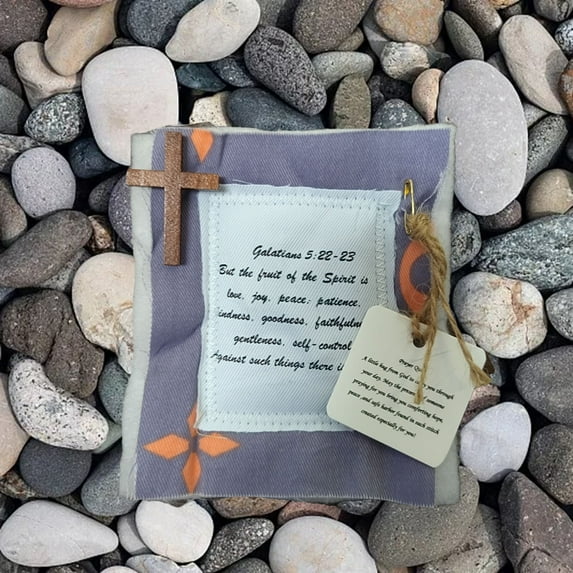 Galatians 5:22-23
But the fruit of the Spirit is
love, joy, peace, patience,
indness, goodness, faithfuln
gentleness, self-control
Against such things there i
Prayer Qu
A little hug from God to you through
your day. May the someone
praying for you bring you comforting hope,
peace and safe harbor found in each stitch
created especially for you!